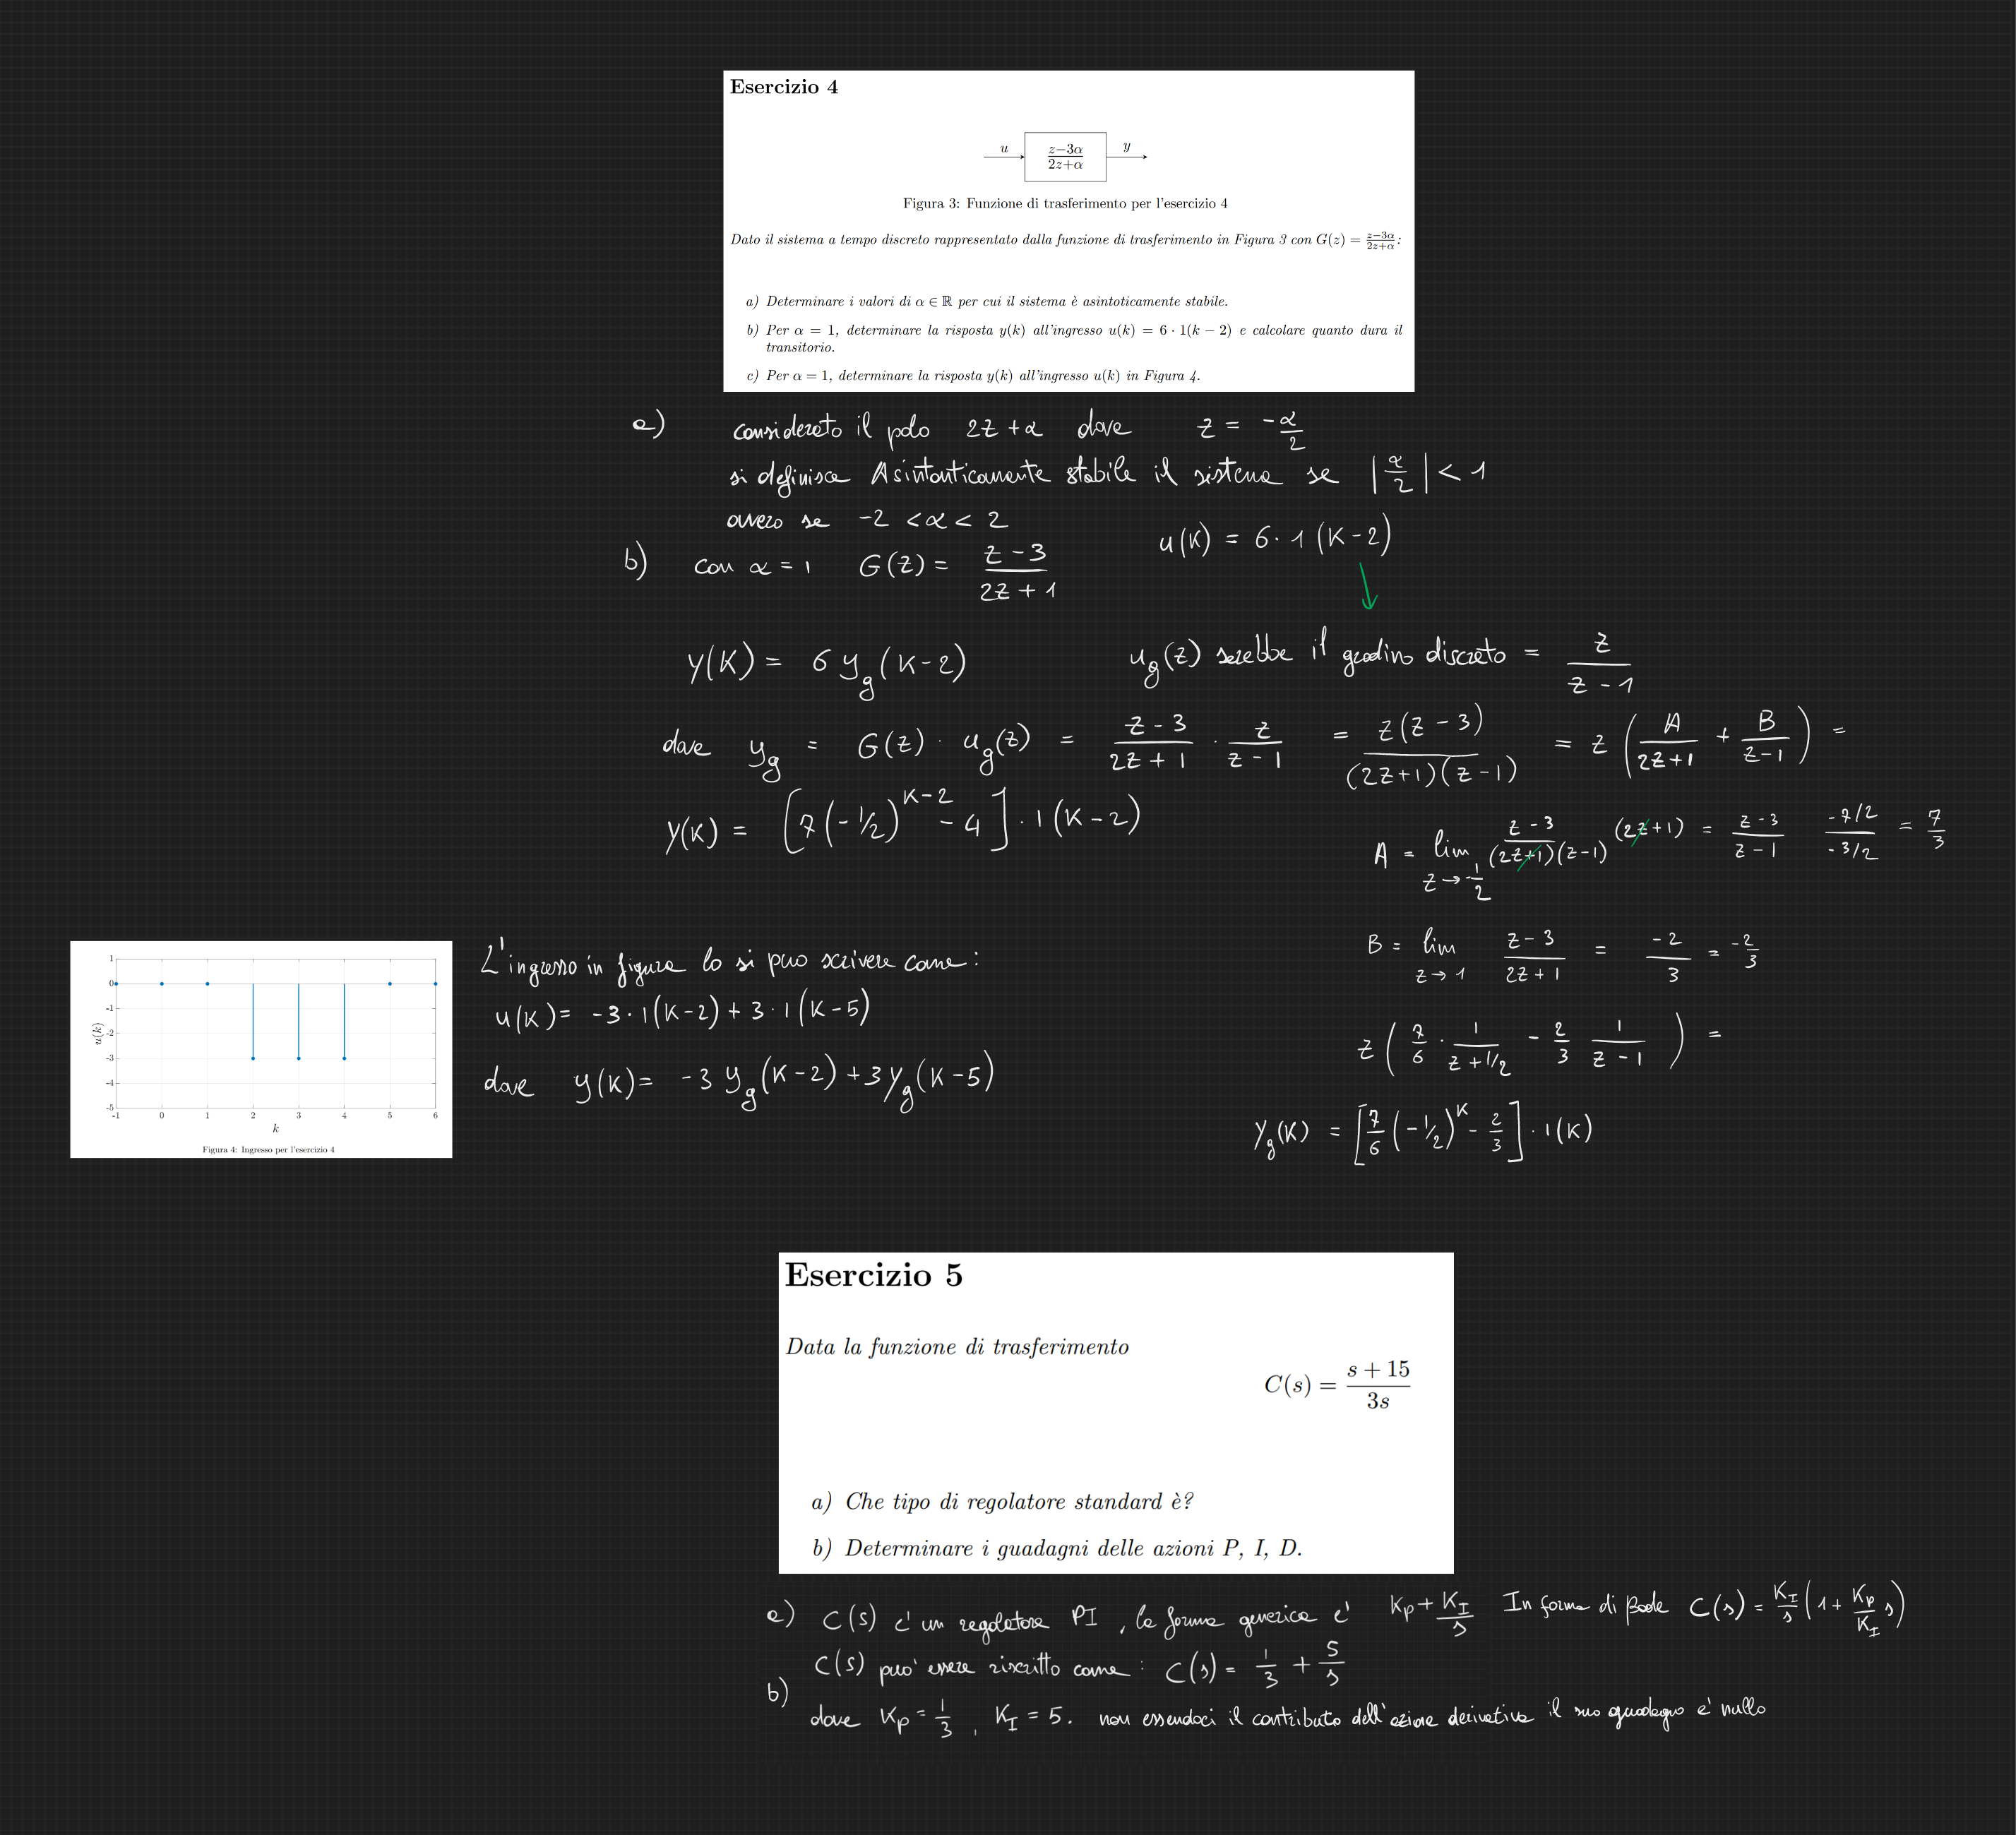 Esercizio 4
u
z−3α
2z+α
y
Figura 3: Funzione di trasferimento per l'esercizio 4
Dato il sistema a tempo discreto rappresentato dalla funzione di trasferimento in Figura 3 con G(z) = (z−3α)/(2z+α):
a) Determinare i valori di α ∈ ℝ per cui il sistema è asintoticamente stabile.
b) Per α = 1, determinare la risposta y(k) all'ingresso u(k) = 6 · 1(k − 2) e calcolare quanto dura il
transitorio.
c) Per α = 1, determinare la risposta y(k) all'ingresso u(k) in Figura 4.
a) considerato il polo 2z + α dove z = -α/2
si definisce Asintoticamente stabile il sistema se |α/2| < 1
ovvero se -2 < α < 2
b) con α = 1 G(z) = (z - 3)/(2z + 1)
u(K) = 6 · 1 (K-2)
y(K) = 6 y_g (K-2)
u_g(z) sarebbe il gradino discreto = z/(z - 1)
dove y_g = G(z) · u_g(z) = (z - 3)/(2z + 1) · z/(z - 1) = z(z - 3)/((2z+1)(z-1)) = z (A/(2z+1) + B/(z-1)) =
y(K) = [7(-1/2)^(K-2) - 4] · 1(K-2)
A = lim z→-1/2 (z-3)/((2z+1)(z-1)) (2z+1) = (z-3)/(z-1) (-7/2)/(-3/2) = 7/3
B = lim z→1 (z-3)/(2z+1) = -2/3 = -2/3
z (7/6 · 1/(z+1/2) - 2/3 1/(z-1)) =
y_g(K) = [7/6 (-1/2)^K - 2/3] · 1(K)
1
0
-1
-2
-3
-4
-5
u(k)
-1 0 1 2 3 4 5 6
k
Figura 4: Ingresso per l'esercizio 4
L'ingresso in figura lo si puo scrivere come:
u(K) = -3 · 1(K-2) + 3 · 1(K-5)
dove y(K) = -3 y_g(K-2) + 3 y_g(K-5)
Esercizio 5
Data la funzione di trasferimento
C(s) = (s + 15)/3s
a) Che tipo di regolatore standard è?
b) Determinare i guadagni delle azioni P, I, D.
a) C(s) e' un regolatore PI, la forma generica e' K_P + K_I/s In forma di Bode C(s) = K_I/s (1 + K_P/K_I s)
C(s) puo' essere riscritto come: C(s) = 1/3 + 5/s
b) dove K_P = 1/3, K_I = 5. non essendoci il contributo dell'azione derivativa il suo guadagno e' nullo